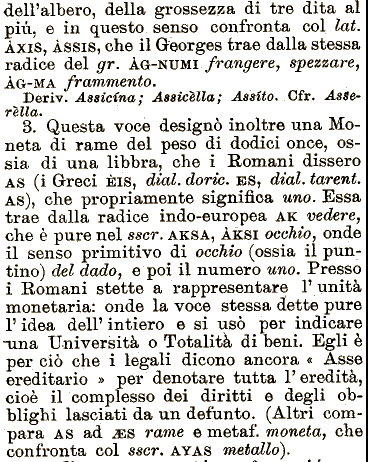 dell'albero, della grossezza di tre dita al
piú, e in questo senso confronta col lat.
ÀXIS, ÀSSIS, che il Georges trae dalla stessa
radice del gr. ÀG-NUMI frangere, spezzare,
ÀG-MA frammento.
Deriv. Assicína; Assicèlla; Assíto. Cfr. Asse-
rèlla.
3. Questa voce designò inoltre una Mo-
neta di rame del peso di dodici once, os-
sia di una libbra, che i Romani dissero
AS (i Greci ÈIS, dial. doric. ES, dial. tarent.
AS), che propriamente significa uno. Essa
trae dalla radice indo-europea AK vedere,
che è pure nel sscr. AKSA, ÀKSI occhio, onde
il senso primitivo di occhio (ossia il pun-
tino) del dado, e poi il numero uno. Presso
i Romani stette a rappresentare l'unità
monetaria: onde la voce stessa dette pure
l'idea dell'intiero e si usò per indicare
una Università o Totalità di beni. Egli è
per ciò che i legali dicono ancora « Asse
ereditario » per denotare tutta l'eredità,
cioè il complesso dei diritti e degli ob-
blighi lasciati da un defunto. (Altri com-
para AS ad ÆS rame e metaf. moneta, che
confronta col sscr. AYAS metallo).